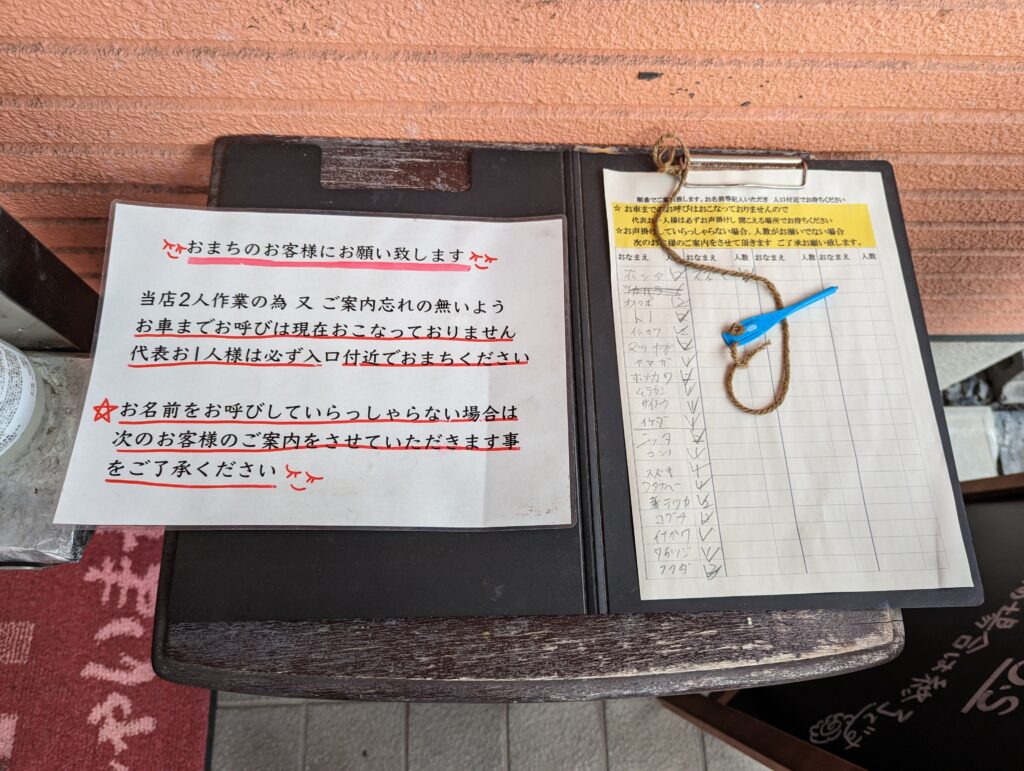 おまちのお客様にお願い致します
当店2人作業の為 又 ご案内忘れの無いよう
お車までお呼びは現在おこなっておりません
代表お1人様は必ず入口付近でおまちください
☆お名前をお呼びしていらっしゃらない場合は
次のお客様のご案内をさせていただきます事
をご了承ください
順番でご案内致します。お名前等記入いただき 入口付近でお待ちください
☆ お車までのお呼びはおこなっておりませんので
代表お一人様は必ずお声掛けし 聞こえる場所でお待ちください
☆お声掛けしていらっしゃらない場合、人数がお揃いでない場合
次のお客様のご案内をさせて頂きます ご了承お願い致します。
おなまえ 人 おなまえ 人数 おなまえ 人数 おなまえ 人数
ホッタ
トノ
イシカワ
ヤマガ
ホソカワ
ムラカシ
サイトウ
イケダ
ニッタ
コンノ
スズキ
ワタナベ
コグチ
イナガワ
フクダ
やいま
の場合は